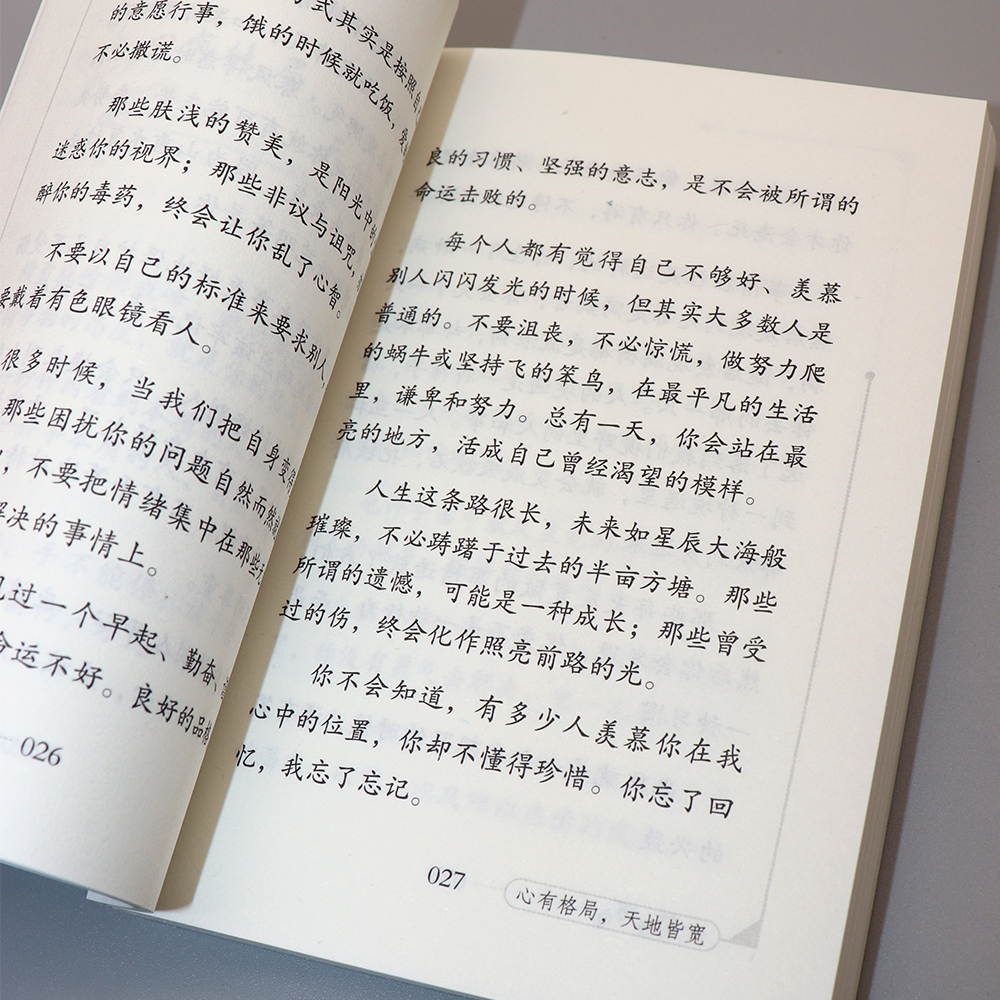 方式其实是按照自
的意愿行事，饿的时候就吃饭，
不必撒谎。
那些肤浅的赞美，是阳光中的
迷惑你的视界；那些非议与诅咒，
醉你的毒药，终会让你乱了心智。
不要以自己的标准来要求别人，
要戴着有色眼镜看人。
很多时候，当我们把自身变得
那些困扰你的问题自然而然
，不要把情绪集中在那些
解决的事情上。
见过一个早起、勤奋、
命运不好。良好的品格
026
良的习惯、坚强的意志，是不会被所谓的
命运击败的。
每个人都有觉得自己不够好、羡慕
别人闪闪发光的时候，但其实大多数人是
普通的。不要沮丧，不必惊慌，做努力爬
的蜗牛或坚持飞的笨鸟，在最平凡的生活
里，谦卑和努力。总有一天，你会站在最
亮的地方，活成自己曾经渴望的模样。
人生这条路很长，未来如星辰大海般
璀璨，不必踌躇于过去的半亩方塘。那些
所谓的遗憾，可能是一种成长；那些曾受
过的伤，终会化作照亮前路的光。
你不会知道，有多少人羡慕你在我
心中的位置，你却不懂得珍惜。你忘了回
忆，我忘了忘记。
027
心有格局，天地皆宽